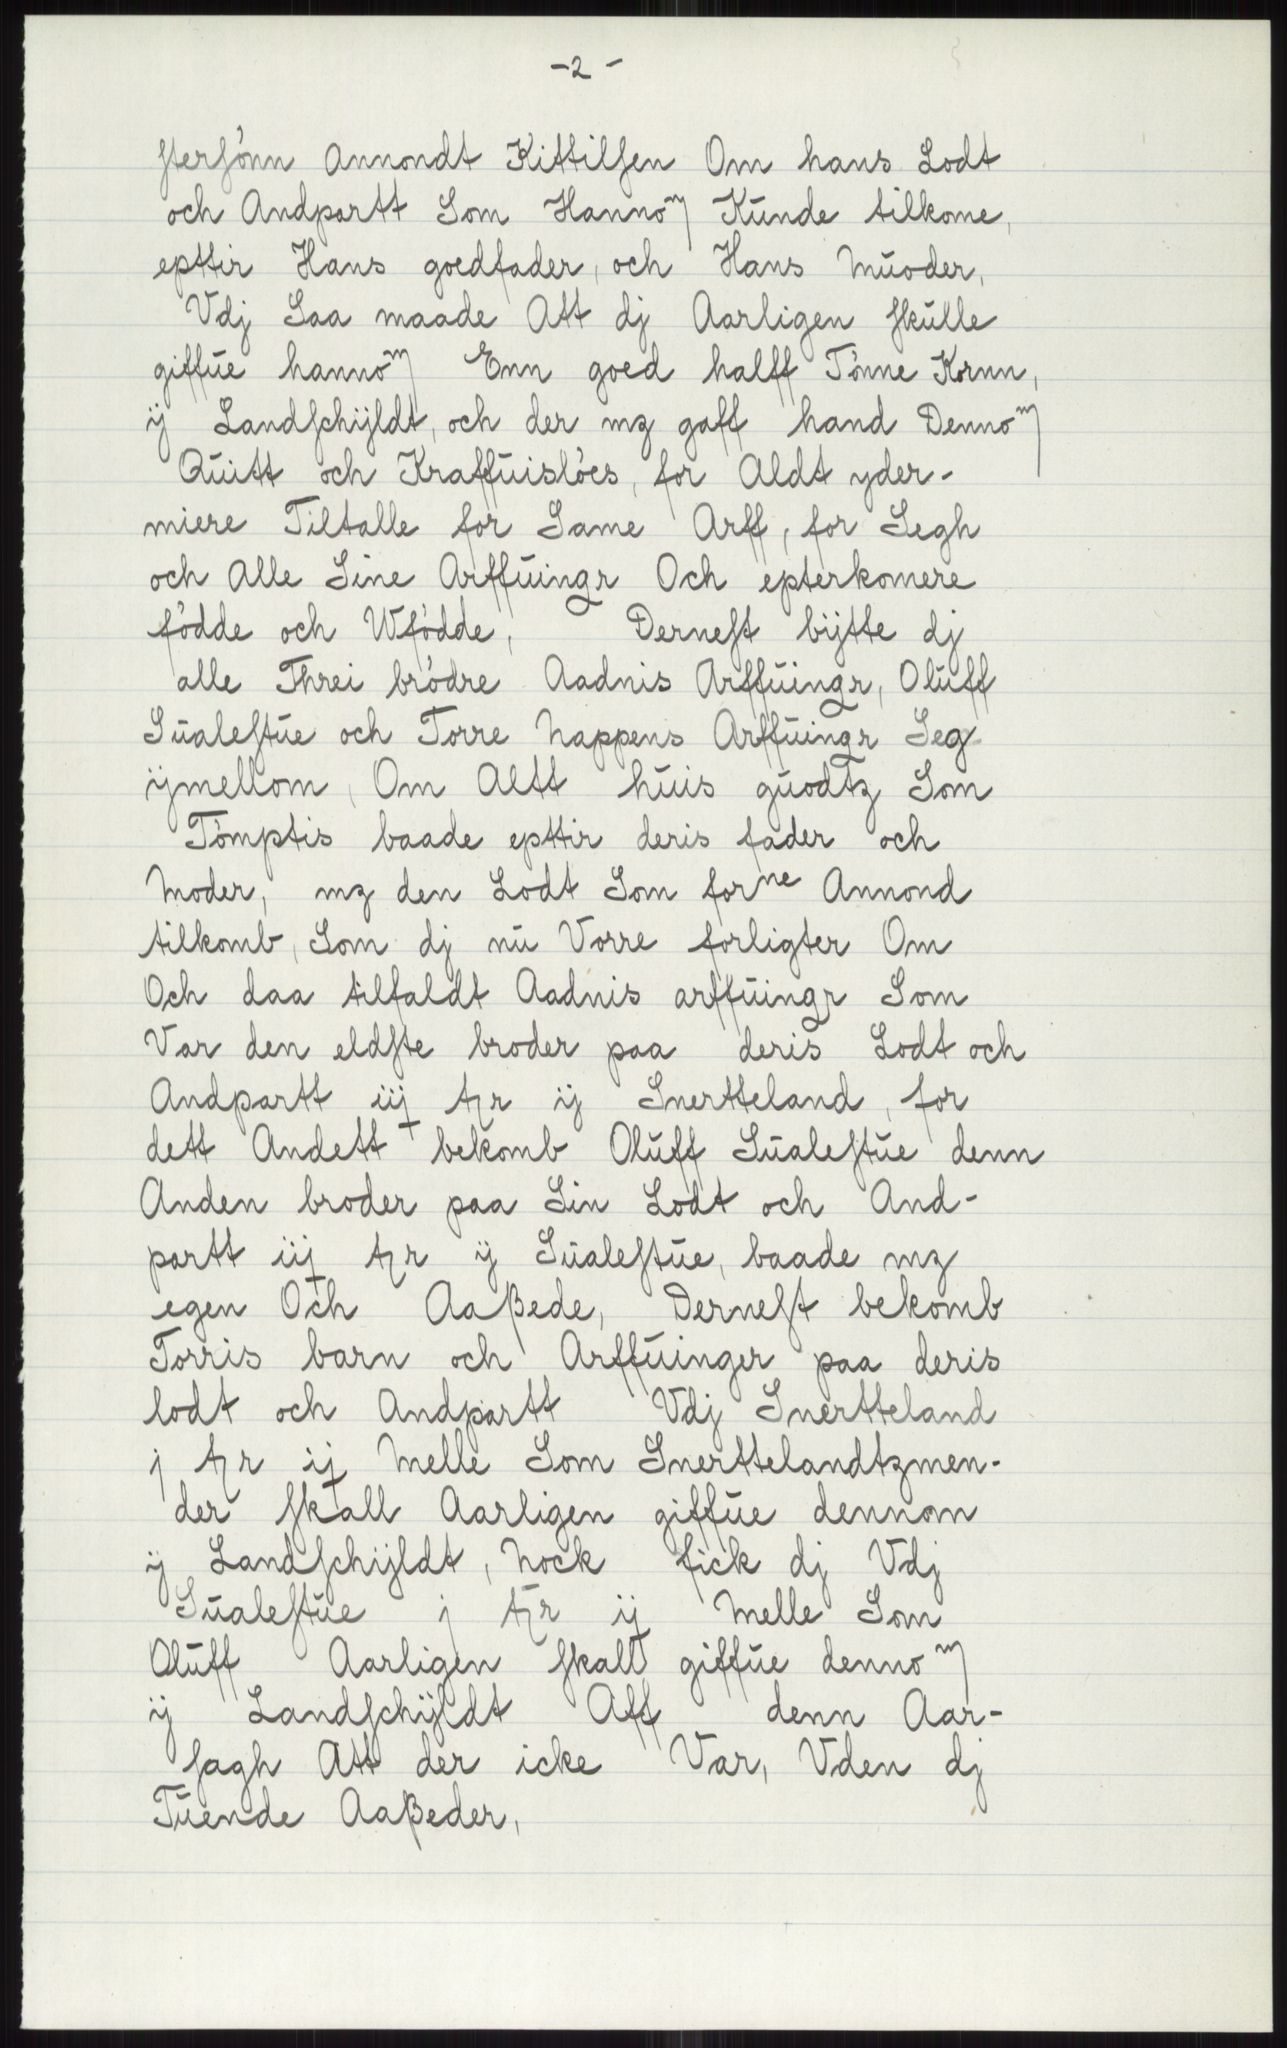 -2-
stersönn Annondt Kittilsen Om hans Lodt
och Andpartt Som Hannom Kunde tilkome,
epttir Hans goedfader, och Hans Muoder,
Vdj Saa maade Att dj Aarligen skulle
giffue hannom Enn goed halff Tönne Kornn,
ij Landschijldt, och der mz gaff hand Dennom
Quitt och Kraffuislöes, for Aldt yder-
miere Tiltalle for Same Arff, for Segh
och Alle Sine Arffuingr Och epterkomere
födde och Wfödde, Dernest bijtte dj
alle Threi brödre Aadnis Arffuingr, Oluff
Sualestue och Torre Nappens Arffuingr Seg
ijmellom, Om Altt huis guodtz Som
Tömptis baade epttir deris fader och
Moder, mz den Lodt Som forne Annond
tilkomb, Som dj nu Vorre forligter Om
Och daa tilfaldt Aadnis arffuingr Som
Var den eldste broder paa deris Lodt och
Andpartt iij tzr ij Snertteland, for
dett Andett bekomb Oluff Sualestue denn
Anden broder paa Sin Lodt och And-
partt iij tzr ij Sualestue, baade mz
egen Och Aaßede, Dernest bekomb
Torris barn och Arffuinger paa deris
lodt och Andpartt Vdj Snertteland
j tzr ij Melle Som Snerttelandtzmen-
der skall Aarligen giffue dennom
ij Landschijldt, Nock fick dj Vdj
Sualestue j tzr ij Melle Som
Oluff Aarligen skall giffue dennom
ij Landschijldt Aff denn Aar-
sagh Att der icke Var, Vden dj
Tuende Aaßeder,